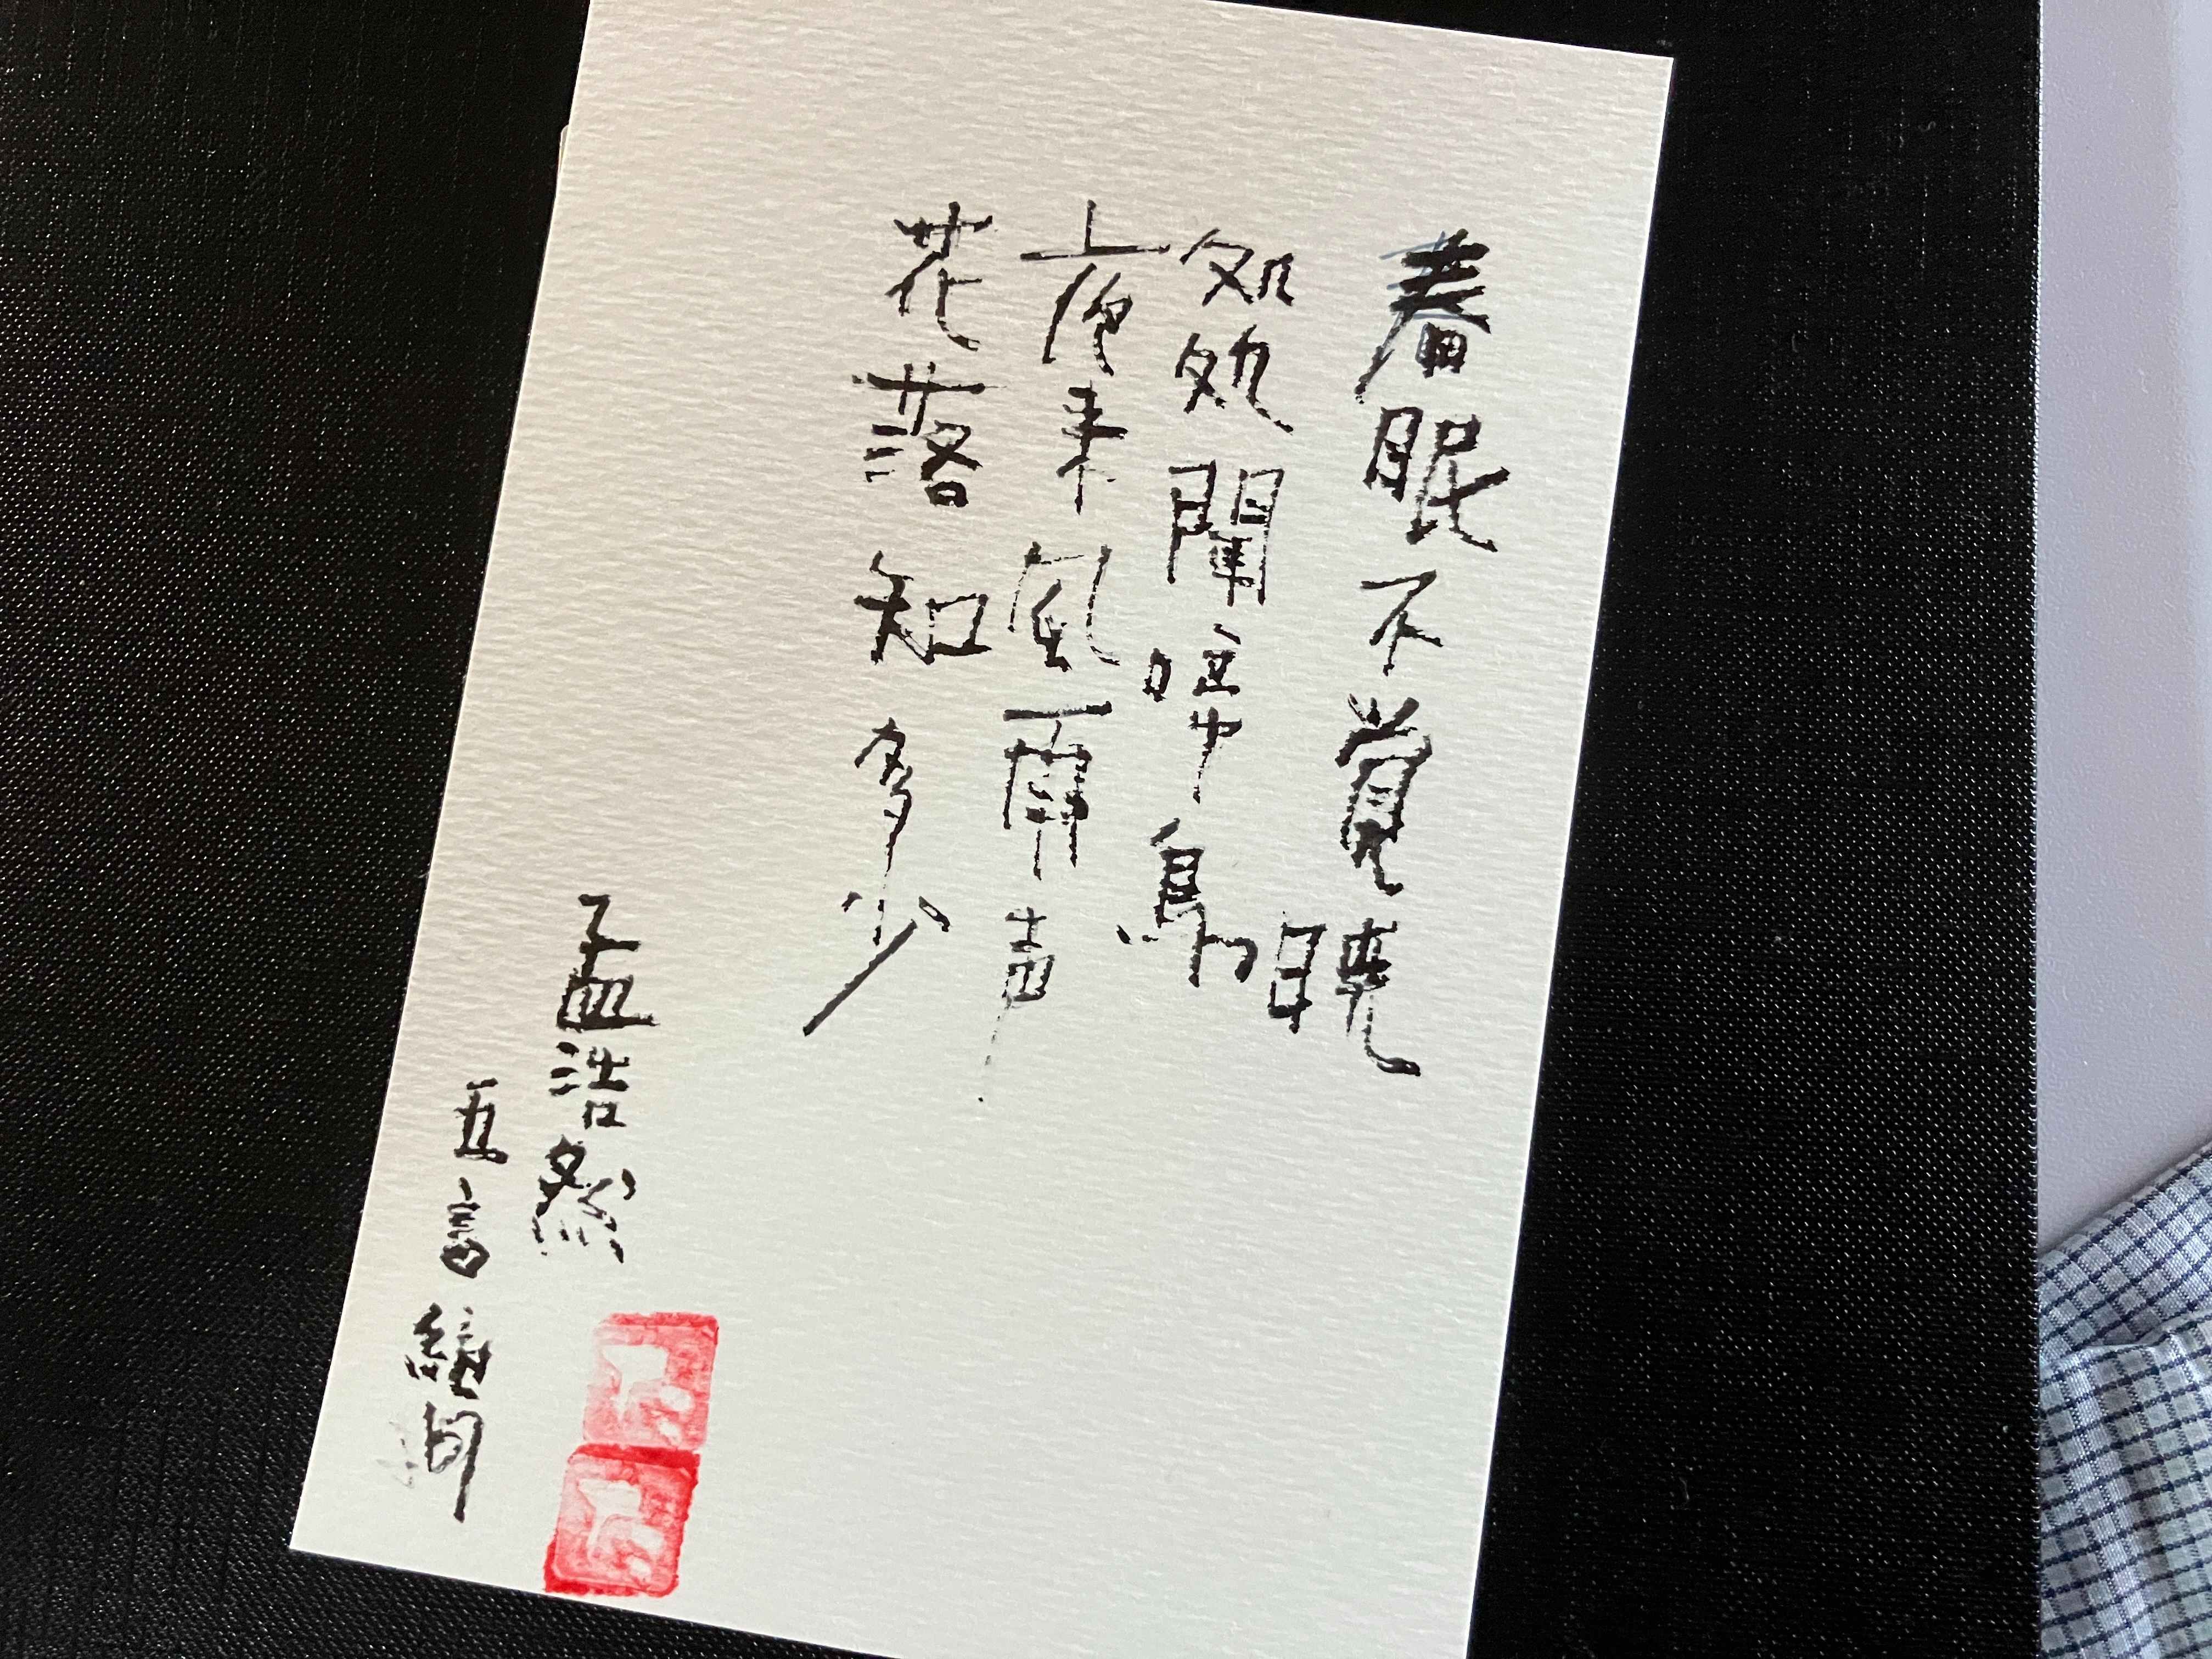 春眠不覚暁
処処聞啼鳥
夜来風雨声
花落知多少
孟浩然
五言絶句